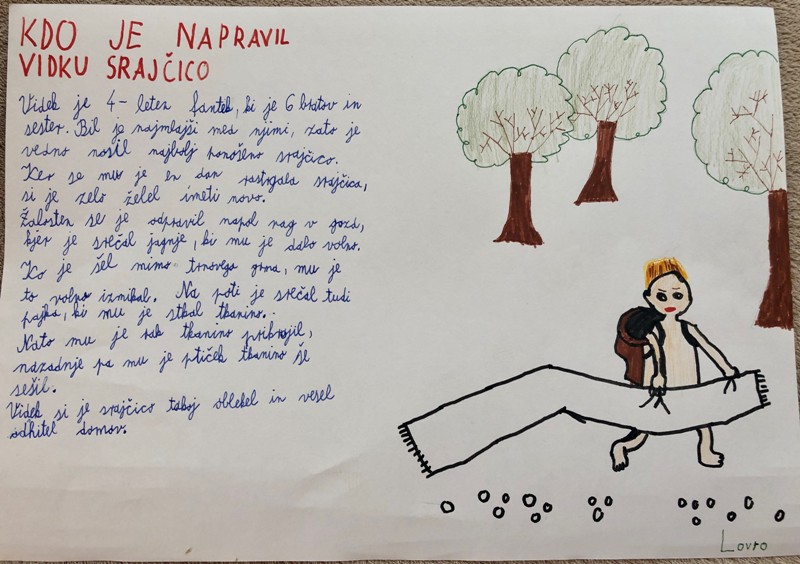 KDO JE NAPRAVIL
VIDKU SRAJČICO
Videk je 4-leten fantek, ki je 6 bratov in
sester. Bil je najmlajši med njimi, zato je
vedno nosil najbolj ponošeno srajčico.
Ker se mu je en dan rastrgala srajčica,
si je zelo želel imeti novo.
Žalosten se je odpravil napol nag v gozd,
kjer je srečal jagnje, ki mu je dalo volno.
Ko je šel mimo trnovega grma, mu je
to volno izmikal. Na poti je srečal tudi
pajka, ki mu je stkal tkanino.
Nato mu je rak tkanino prikrojil,
nazadnje pa mu je ptiček tkanino še
sešil.
Videk si je srajčico takoj oblekel in vesel
odhitel domov.
Lovro